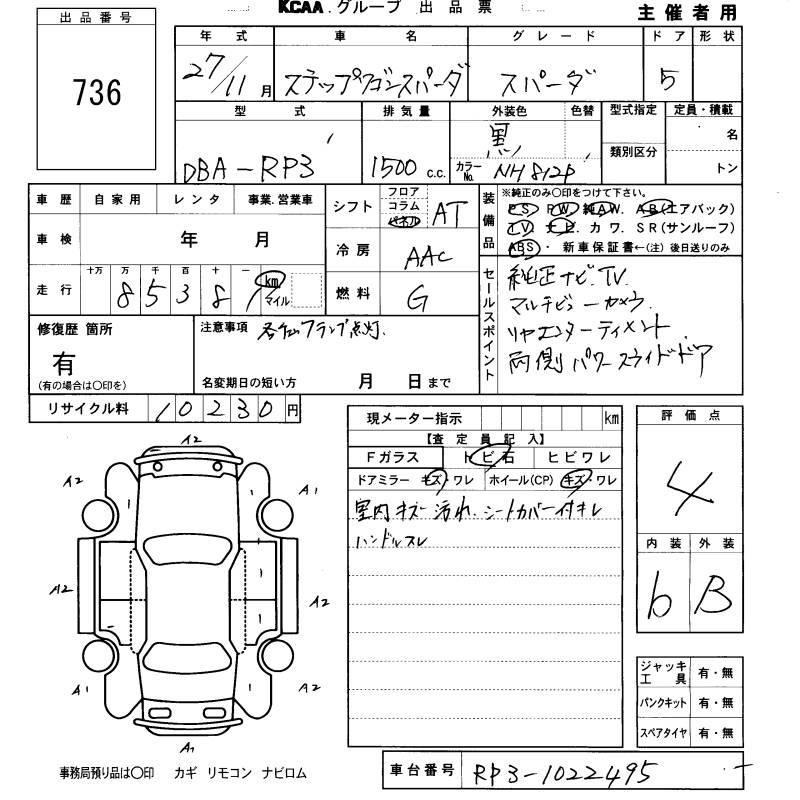 KCAA.グループ 出品票
主催者用
出品番号
736
年式 車名 グレード ドア 形状
27/11月 ステップワゴンスパーダ スパーダ 5
型式 排気量 外装色 色替 型式指定 定員・積載
黒 名
類別区分
DBA-RP3 1500 c.c. カラーNo. NH812P トン
車歴 自家用 レンタ 事業.営業車
車検 年 月
走行 十万 万 千 百 十 一 km マイル
8 5 3 8 9
シフト フロア コラム パネル AT
冷房 AAC
燃料 G
装備品 ※純正のみ〇印をつけて下さい。
PS PW 純AW. AB(エアバック)
TV. ナビ カワ. SR(サンルーフ)
ABS ・ 新車保証書←(注) 後日送りのみ
セールスポイント
純正ナビ. TV
マルチビューカメラ.
リヤエンターティメント
両側パワースライドドア
修復歴 箇所
有
(有の場合は〇印を)
注意事項 ランプ点灯.
名変期日の短い方 月 日まで
リサイクル料 10230円
現メーター指示 km
【査定員記入】
Fガラス トビ石 ヒビワレ
ドアミラー キズ・ワレ ホイール(CP) キズ・ワレ
室内キズ汚れ. シートカバー付キレ
ハンドルスレ
評価点
4
内装 外装
b B
ジャッキ工具 有・無
パンクキット 有・無
スペアタイヤ 有・無
A2
A2 A1
A2 A2
A1 A2
A1
事務局預り品は〇印 カギ リモコン ナビロム
車台番号 RP3-1022495